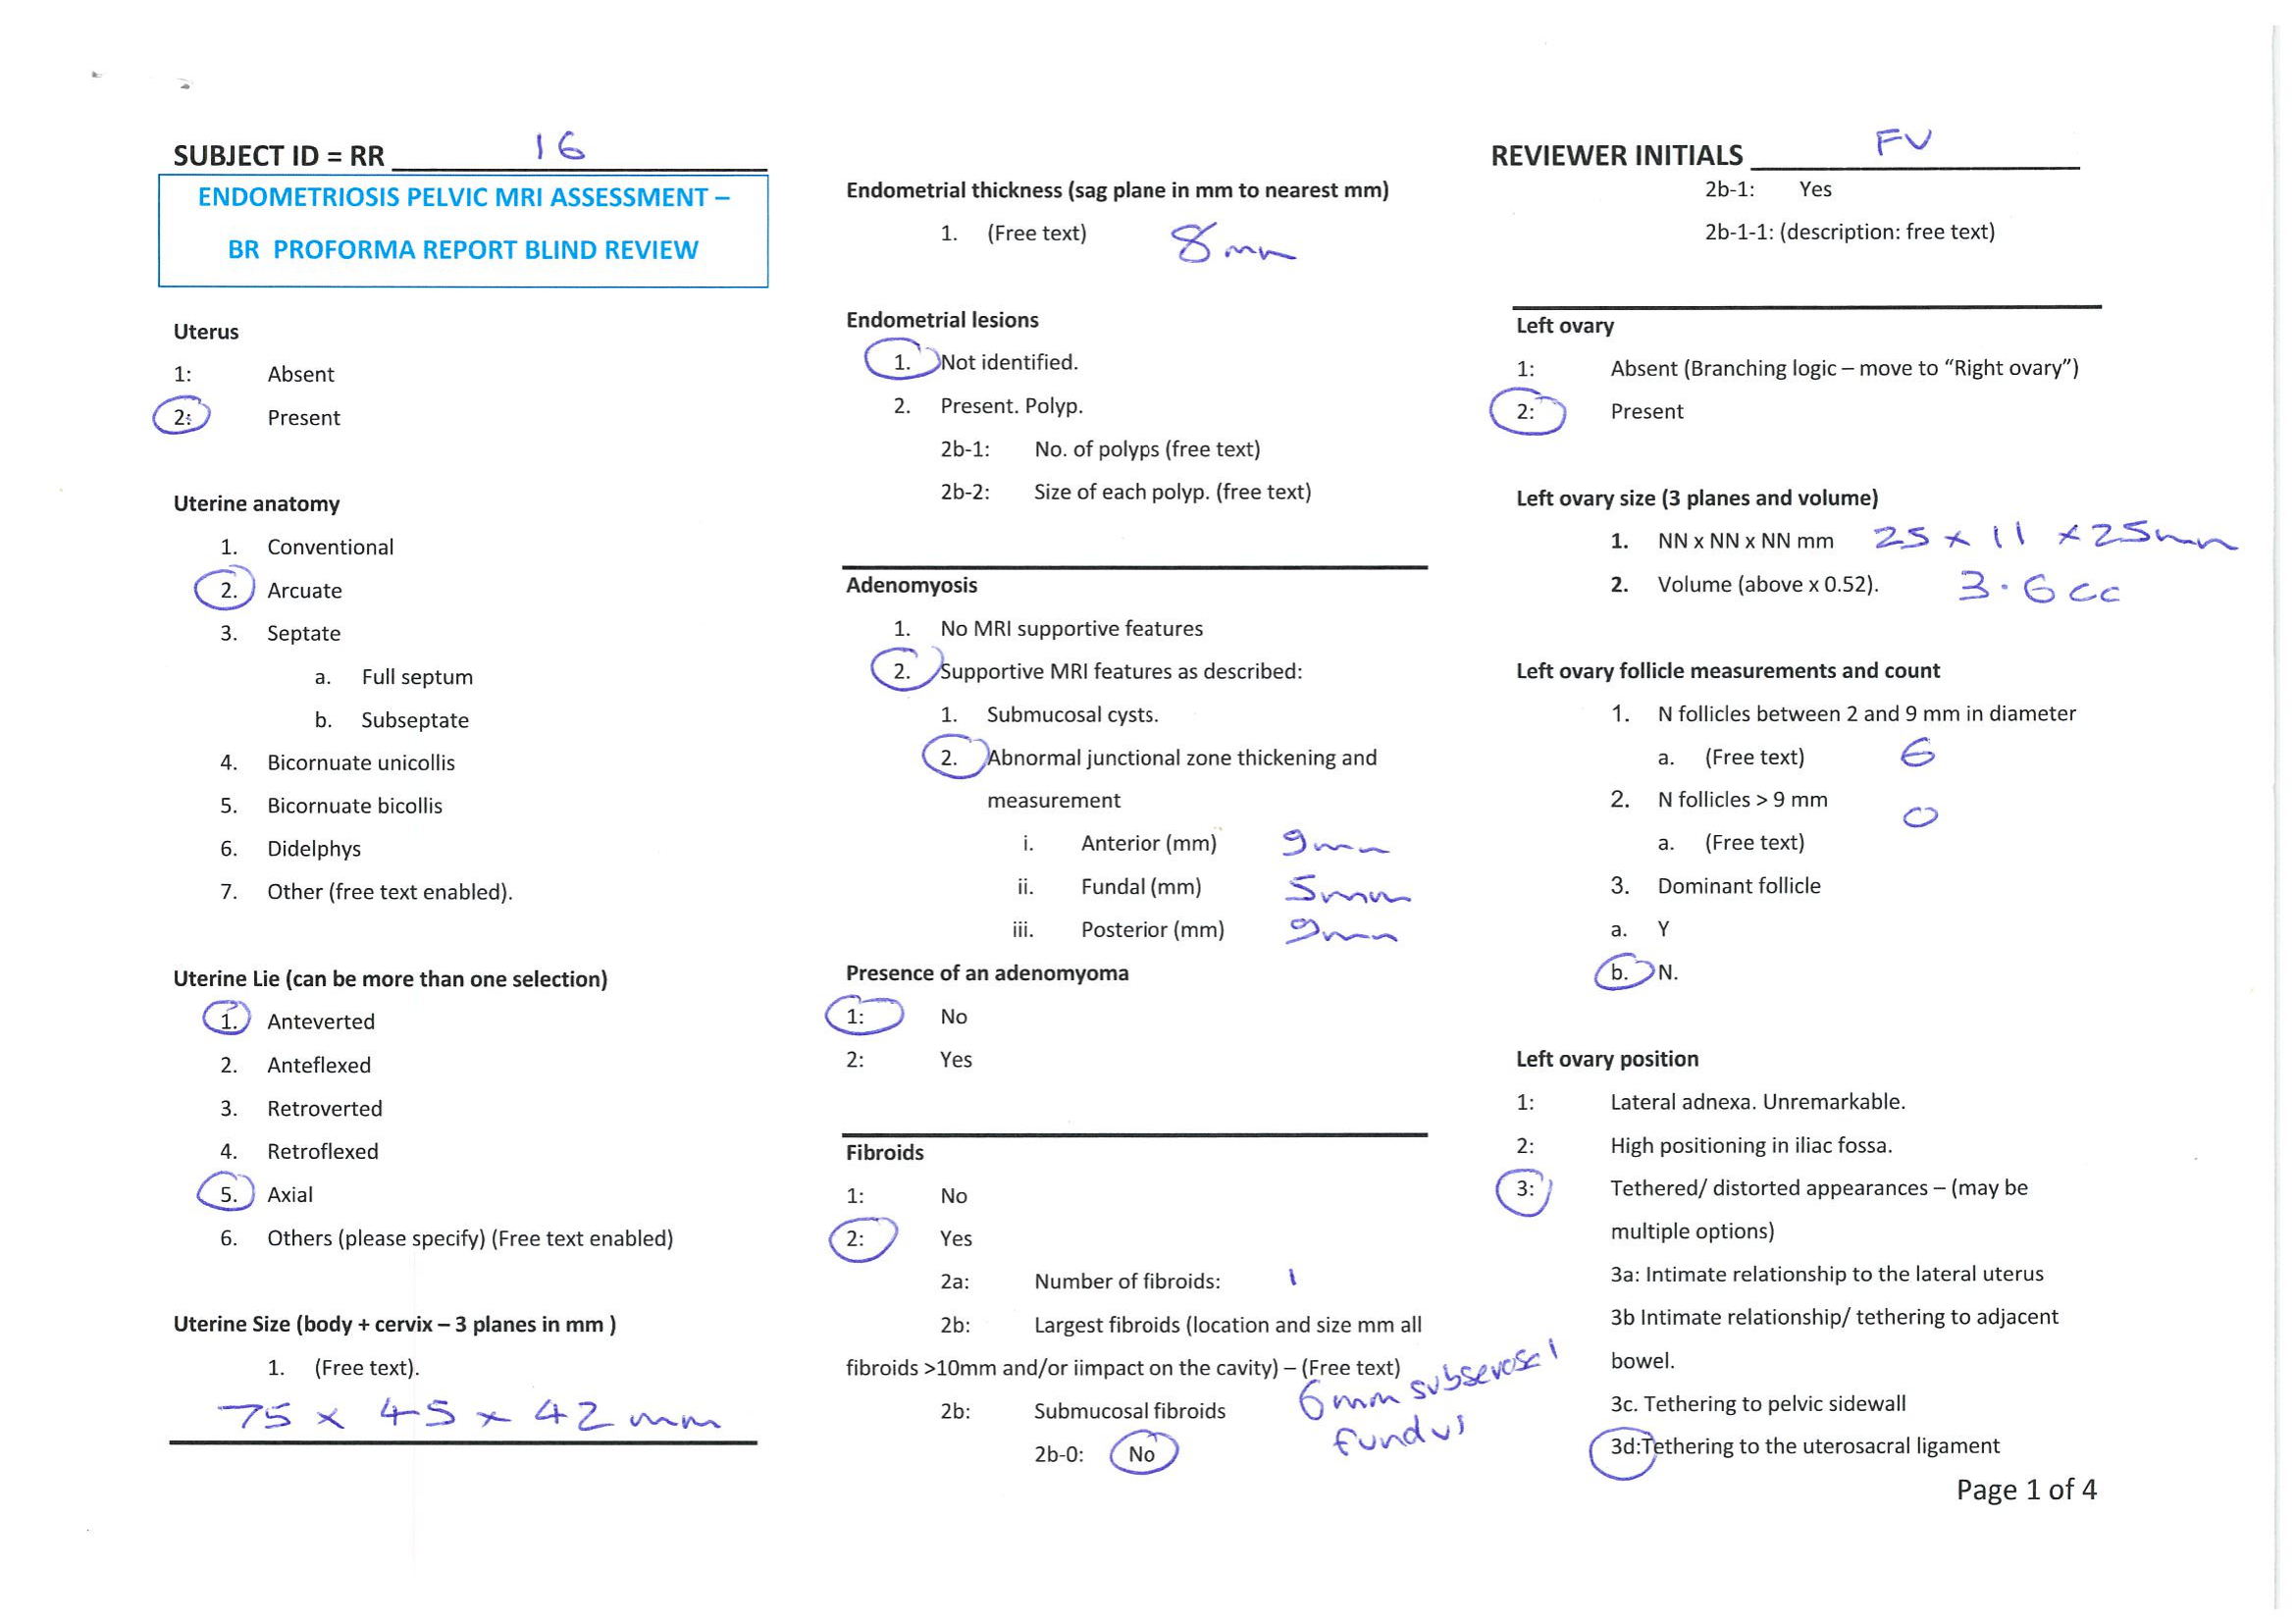 SUBJECT ID = RR 16
ENDOMETRIOSIS PELVIC MRI ASSESSMENT –
BR PROFORMA REPORT BLIND REVIEW
Uterus
1: Absent
2: Present
Uterine anatomy
1. Conventional
2. Arcuate
3. Septate
a. Full septum
b. Subseptate
4. Bicornuate unicollis
5. Bicornuate bicollis
6. Didelphys
7. Other (free text enabled).
Uterine Lie (can be more than one selection)
1. Anteverted
2. Anteflexed
3. Retroverted
4. Retroflexed
5. Axial
6. Others (please specify) (Free text enabled)
Uterine Size (body + cervix – 3 planes in mm )
1. (Free text).
75 x 45 x 42 mm
Endometrial thickness (sag plane in mm to nearest mm)
1. (Free text) 8mm
Endometrial lesions
1. Not identified.
2. Present. Polyp.
2b-1: No. of polyps (free text)
2b-2: Size of each polyp. (free text)
Adenomyosis
1. No MRI supportive features
2. Supportive MRI features as described:
1. Submucosal cysts.
2. Abnormal junctional zone thickening and
measurement
i. Anterior (mm) 9mm
ii. Fundal (mm) 5mm
iii. Posterior (mm) 9mm
Presence of an adenomyoma
1: No
2: Yes
Fibroids
1: No
2: Yes
2a: Number of fibroids: 1
2b: Largest fibroids (location and size mm all
fibroids >10mm and/or iimpact on the cavity) – (Free text)
6mm subserosal
fundus
2b: Submucosal fibroids
2b-0: No
REVIEWER INITIALS FV
2b-1: Yes
2b-1-1: (description: free text)
Left ovary
1: Absent (Branching logic – move to “Right ovary”)
2: Present
Left ovary size (3 planes and volume)
1. NN x NN x NN mm 25 x 11 x 25mm
2. Volume (above x 0.52). 3.6cc
Left ovary follicle measurements and count
1. N follicles between 2 and 9 mm in diameter
a. (Free text) 6
2. N follicles > 9 mm 0
a. (Free text)
3. Dominant follicle
a. Y
b. N.
Left ovary position
1: Lateral adnexa. Unremarkable.
2: High positioning in iliac fossa.
3: Tethered/ distorted appearances – (may be
multiple options)
3a: Intimate relationship to the lateral uterus
3b Intimate relationship/ tethering to adjacent
bowel.
3c. Tethering to pelvic sidewall
3d:Tethering to the uterosacral ligament
Page 1 of 4